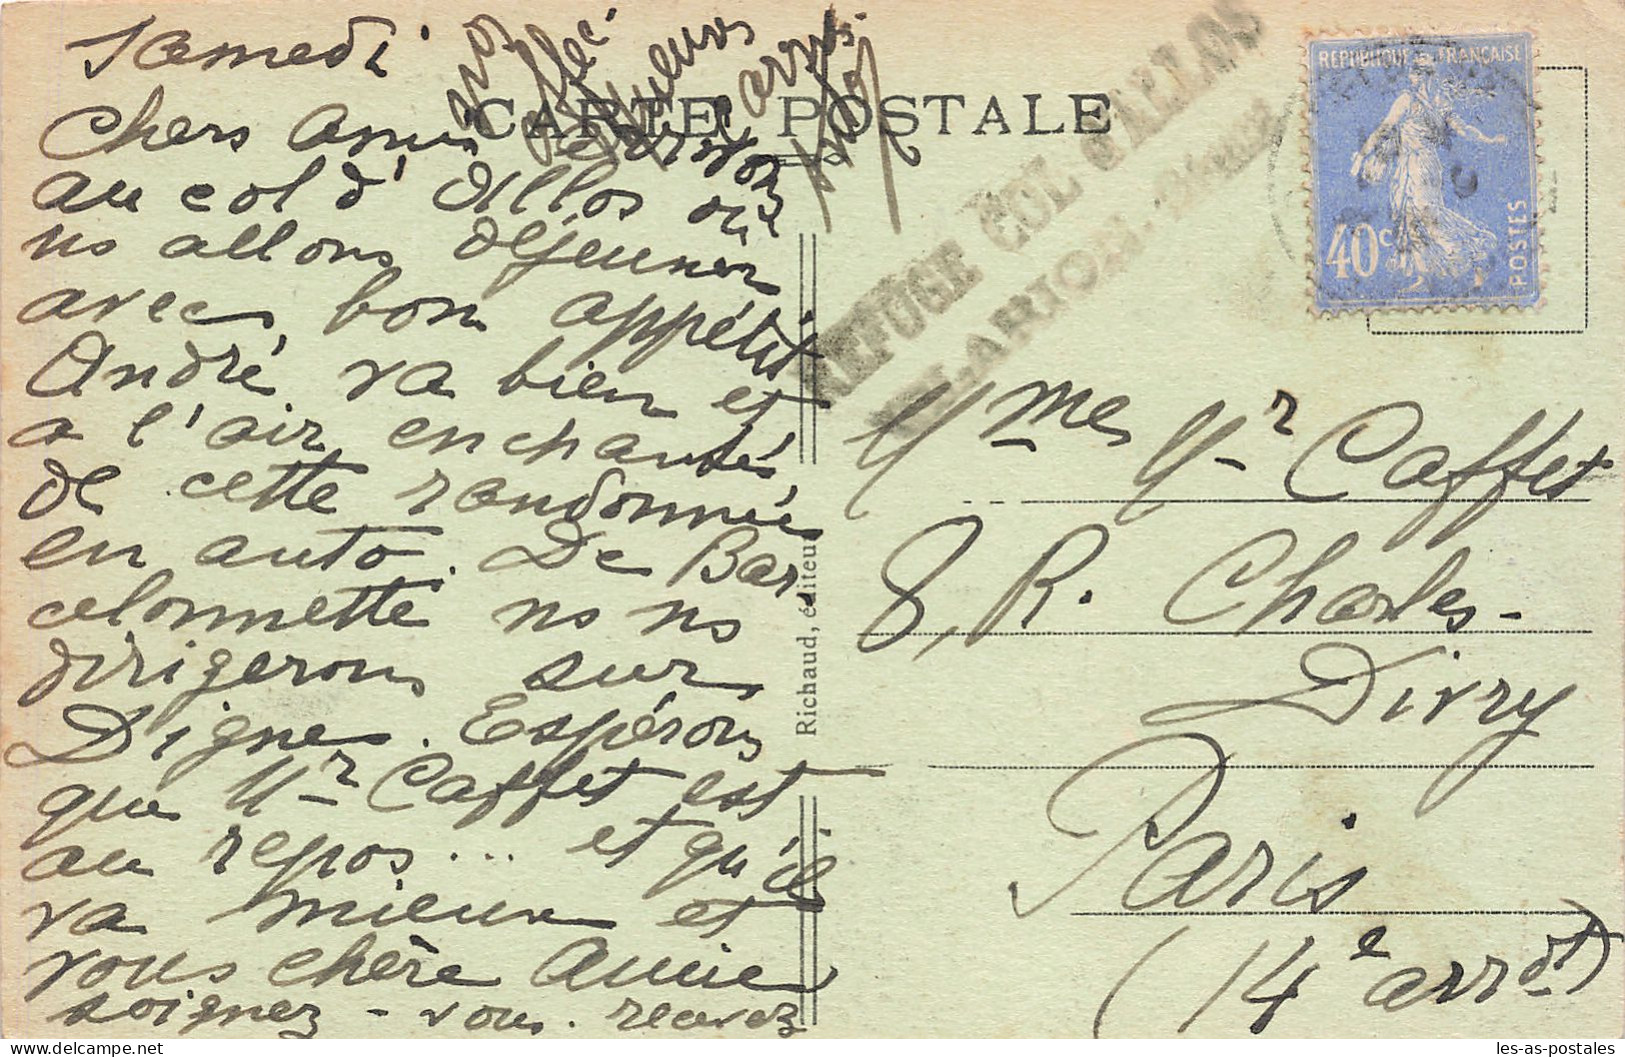 Samedi
Chers Amis
au col d'Allos où
ns allons déjeuner
avec bon appétit
André va bien et
a l'air enchanté
de cette randonnée
en auto. De Bar
celonnette ns ns
dirigerons sur
Digne. Espérons
que Mr Caffet est
au repos... et qu'il
va mieux et
vous chère Amie
soignez-vous. recevez
nos affec
arrivons
CARTE POSTALE
Richaud, éditeur
REFUGE COL D'ALLOS
REPUBLIQUE FRANÇAISE
40c
POSTES
Mme Mr Caffet
8, R. Charles-
Divry
Paris
(14e arrdt)
les-as-postales
© delcampe.net